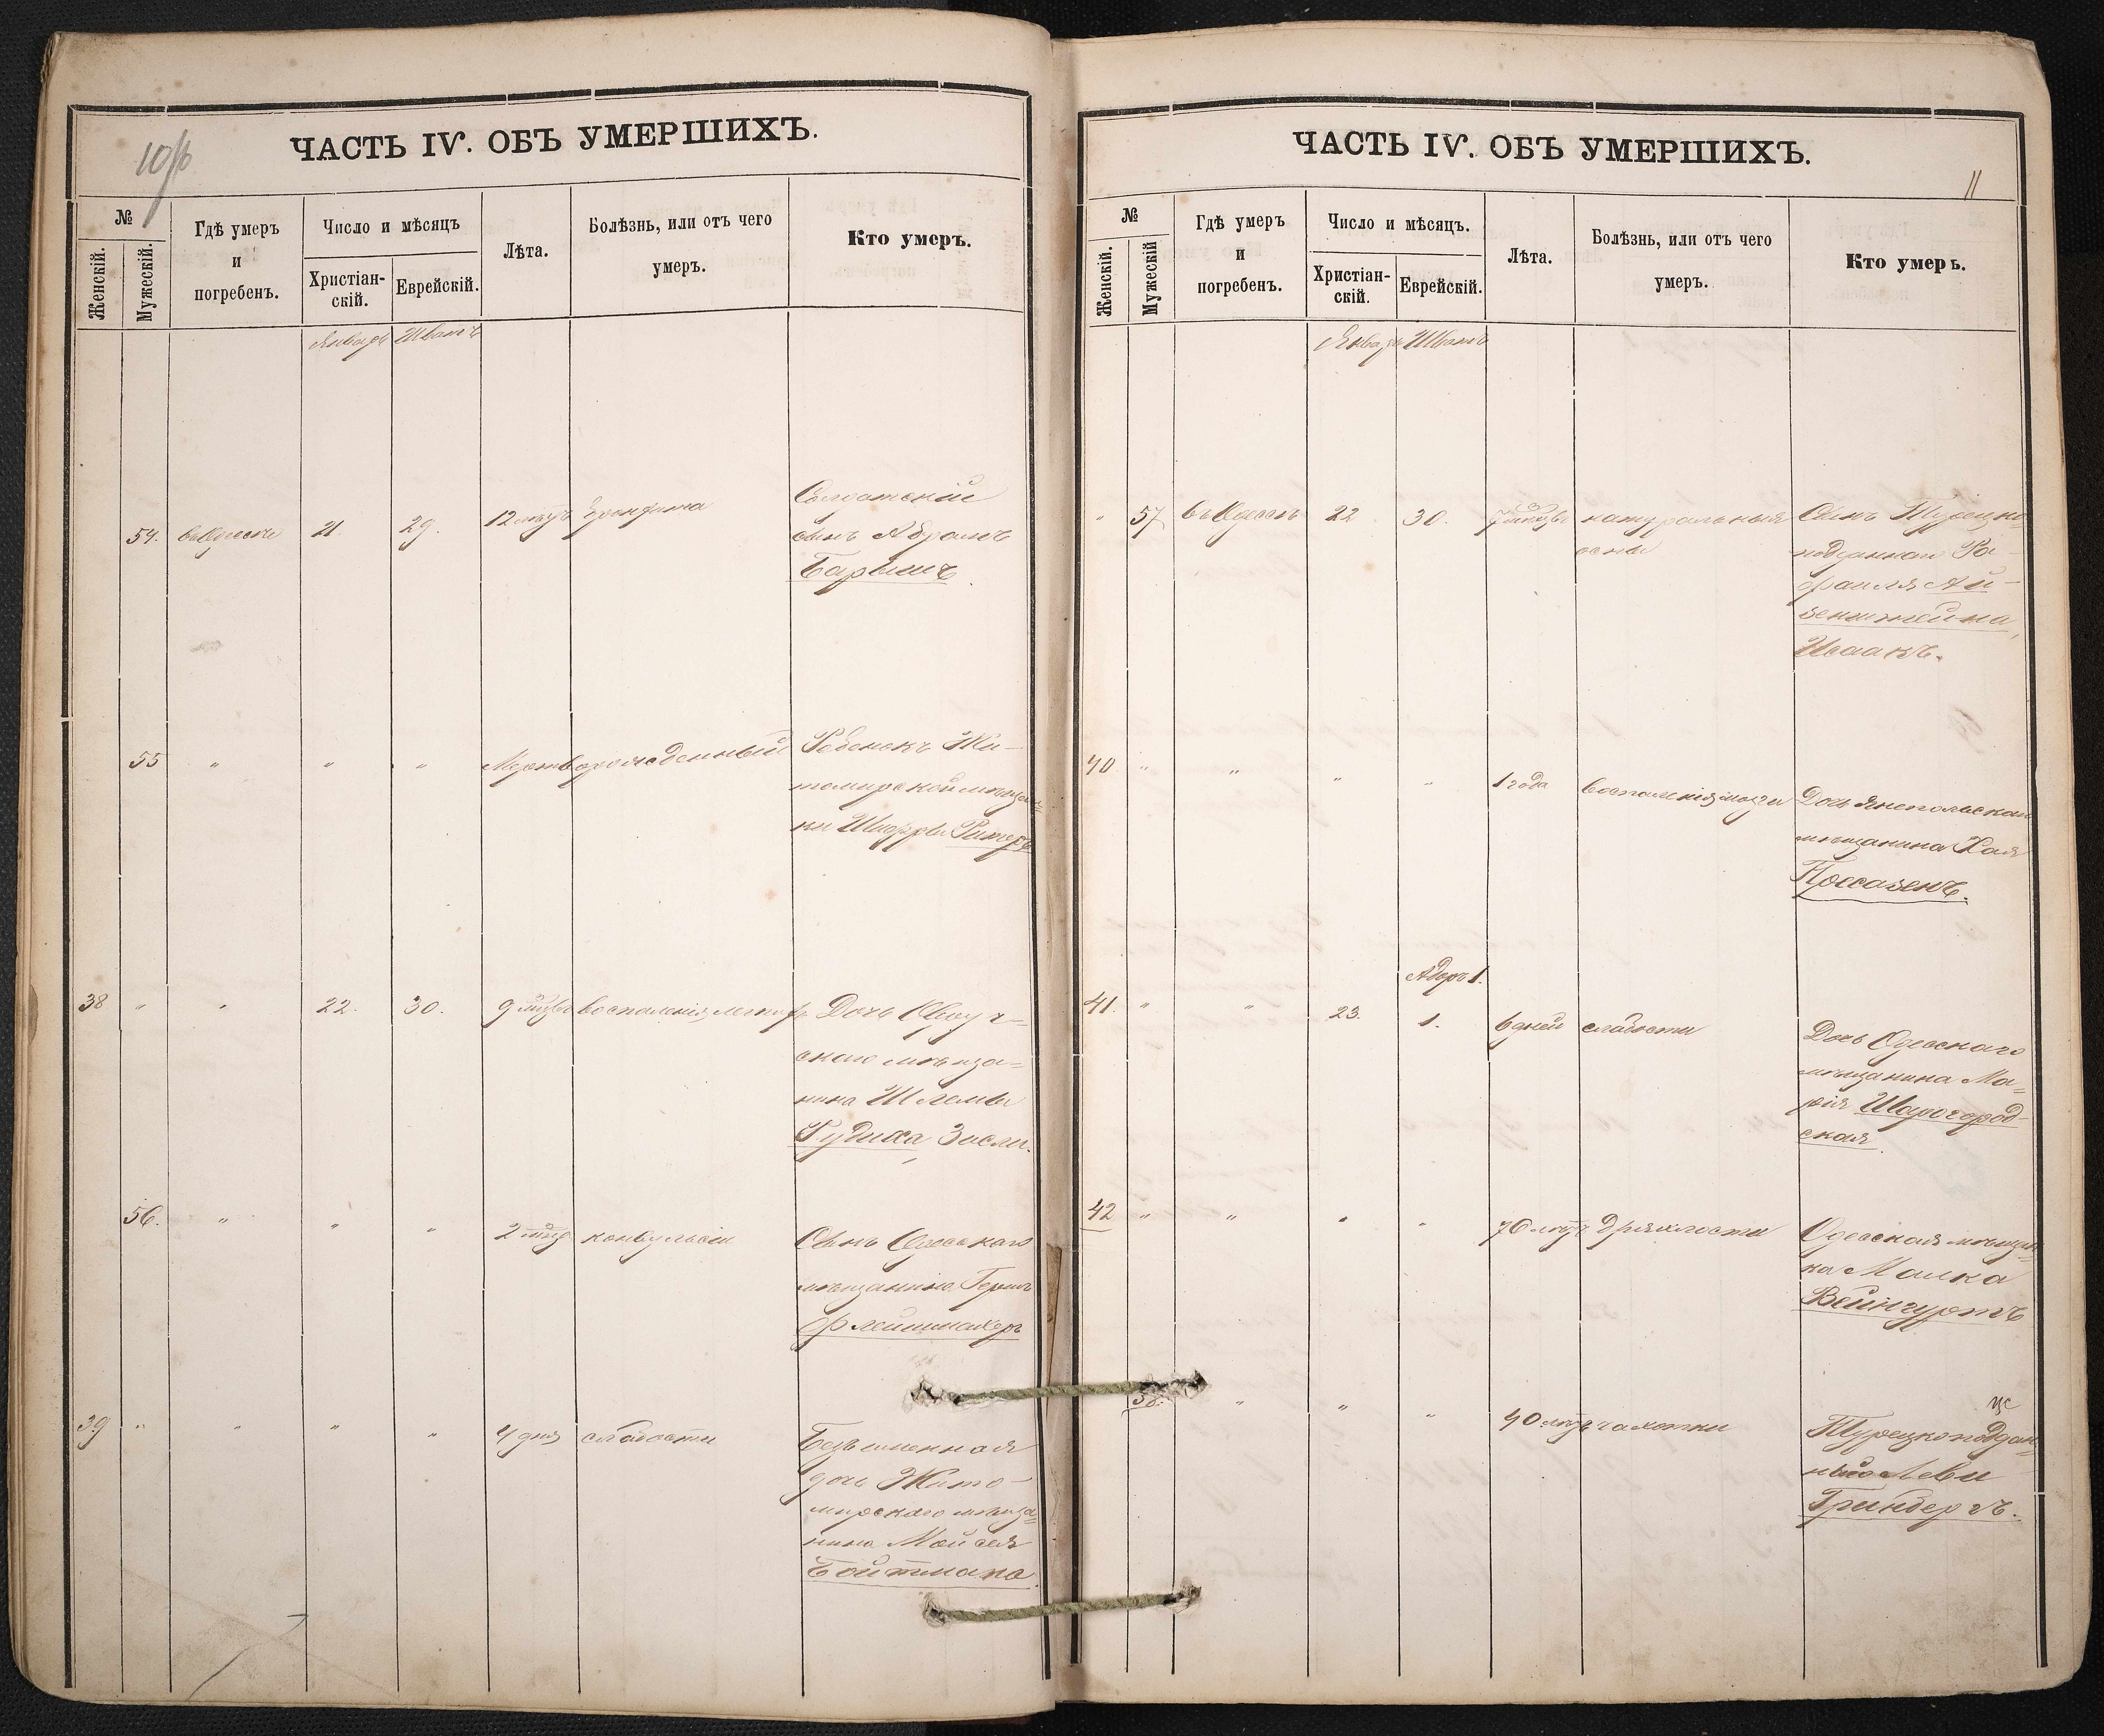 ЧАСТЬ IV. ОБЪ УМЕРШИХЪ.
№
Женскій.
Мужескій.
Гдѣ умеръ
и
погребенъ.
Число и мѣсяцъ
Христіан-
скій.
Еврейскій.
Лѣта.
Болѣзнь, или отъ чего
умеръ.
Кто умеръ.
Январь Шватъ
54. въ Одессѣ 21. 29. 12 лѣтъ
Солдатскій
сынъ Абрамъ
Барышъ.
55 " " " Мертворожденный
Ребенокъ Жи-
томирской мѣщан-
ки
38 " " 22. 30. 9 мѣсяц воспаленія легкихъ
Дочь Овруч-
скаго мѣща-
нина Шлемы
Гудиса,
56. " " " 2 конвульсіи
Сынъ Одесскаго
мѣщанина Герша
Флейшмахеръ
39 " " " " 4 дня слабости
Безъименная
дочь Жито-
мирскаго мѣща-
нина Мойсея
Бойтмана.
ЧАСТЬ IV. ОБЪ УМЕРШИХЪ.
11
№
Женскій.
Мужескій
Гдѣ умеръ
и
погребенъ.
Число и мѣсяцъ.
Христіан-
скій.
Еврейскій.
Лѣта.
Болѣзнь, или отъ чего
умеръ.
Кто умеръ.
Январь Шватъ
" 57 въ Одессѣ 22 30. натуральныя
оспы
Сынъ Турецко-
подданнаго Ра-
фаила Ай-
зенштейна,
Исаакъ.
40 " " " " 1 года воспаленія мозга
Дочь
мѣщанина Хая
Адаръ 1.
41. " " 23. 1. 6 дней слабости
Дочь Одесскаго
мѣщанина Ма-
рія Шаргород-
ская.
42 " " " " 70 лѣтъ дряхлости
Одесская мѣщан-
ка Малка
Вейнгуртъ
58. " " " 40 лѣтъ чахотки
Турецкоподдан-
Леви
Гринбергъ.